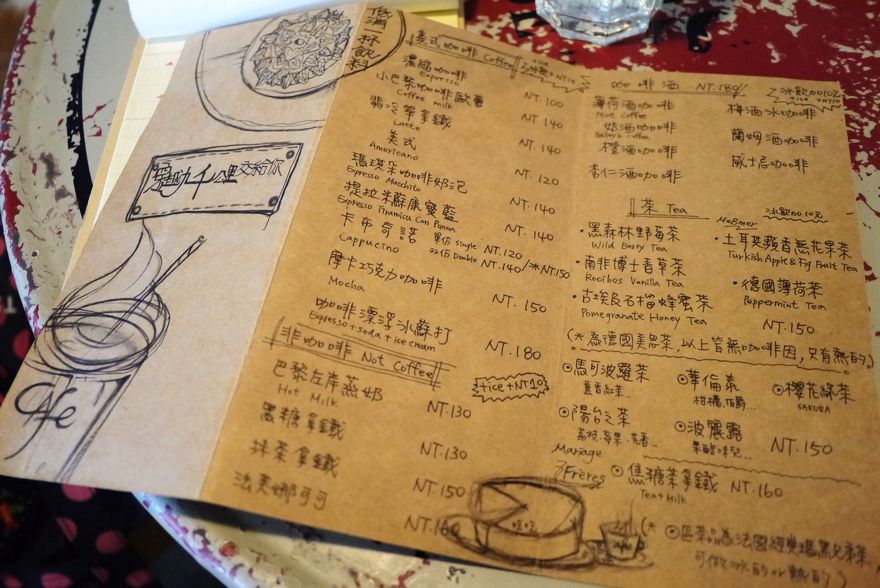 低消一杯飲料
千里交給你
CAFE
義式咖啡 Coffee
濃縮咖啡 NT.100
Espresso
小巴黎咖啡歐蕾 NT.140
Coffee milk
翡冷翠拿鐵 NT.140
Latte
美式 NT.120
Americano
瑪琪朵咖啡奶泡 NT.140
Espresso Macchito
提拉米蘇康寶藍 NT.140
Espresso Tiramisu Con Panna
卡布奇諾 單份 Single NT.120
Cappucino 双份 Double NT.140 / NT.150
摩卡巧克力咖啡 NT.150
Mocha
咖啡漂浮冰蘇打 NT.180
Espresso + soda + ice cream
非咖啡 Not Coffee
+ice+NT10
巴黎左岸蒸奶 NT.130
Hot Milk
黑糖拿鐵 NT.130
抹茶拿鐵 NT.150
法芙娜可可 NT.160
咖啡酒 NT.180
冰飲加10元
+ice +NT10
薄荷酒咖啡 梅酒冰咖啡
Mint Coffee
奶酒咖啡 蘭姆酒咖啡
Bailey's Coffee
橙酒咖啡 威士忌咖啡
杏仁酒咖啡
茶 Tea
冰飲加10元
Meßmer
·黑森林野莓茶 ·土耳其蘋香無花果茶
Wild Berry Tea Turkish Apple & Fig Fruit Tea
·南非博士香草茶 ·德國薄荷茶
Rooibos Vanilla Tea Peppermint Tea
·古埃及石榴蜂蜜茶 NT.150
Pomegranate Honey Tea
(*為德國美思茶,以上皆無咖啡因,只有熱的)
⊙馬可波羅茶 ⊙華倫泰 ⊙櫻花綠茶
薰香紅茶... 柑橘,伯爵... SAKURA
⊙陽台之茶 ⊙波麗露 NT.150
荔枝.苺果.花香...
Mariage Frères
⊙焦糖茶拿鐵 NT.160
Tea+Milk
(* ⊙區茶品為法國經典瑪黑兄弟茶
可做冰的or熱的)
吃吃